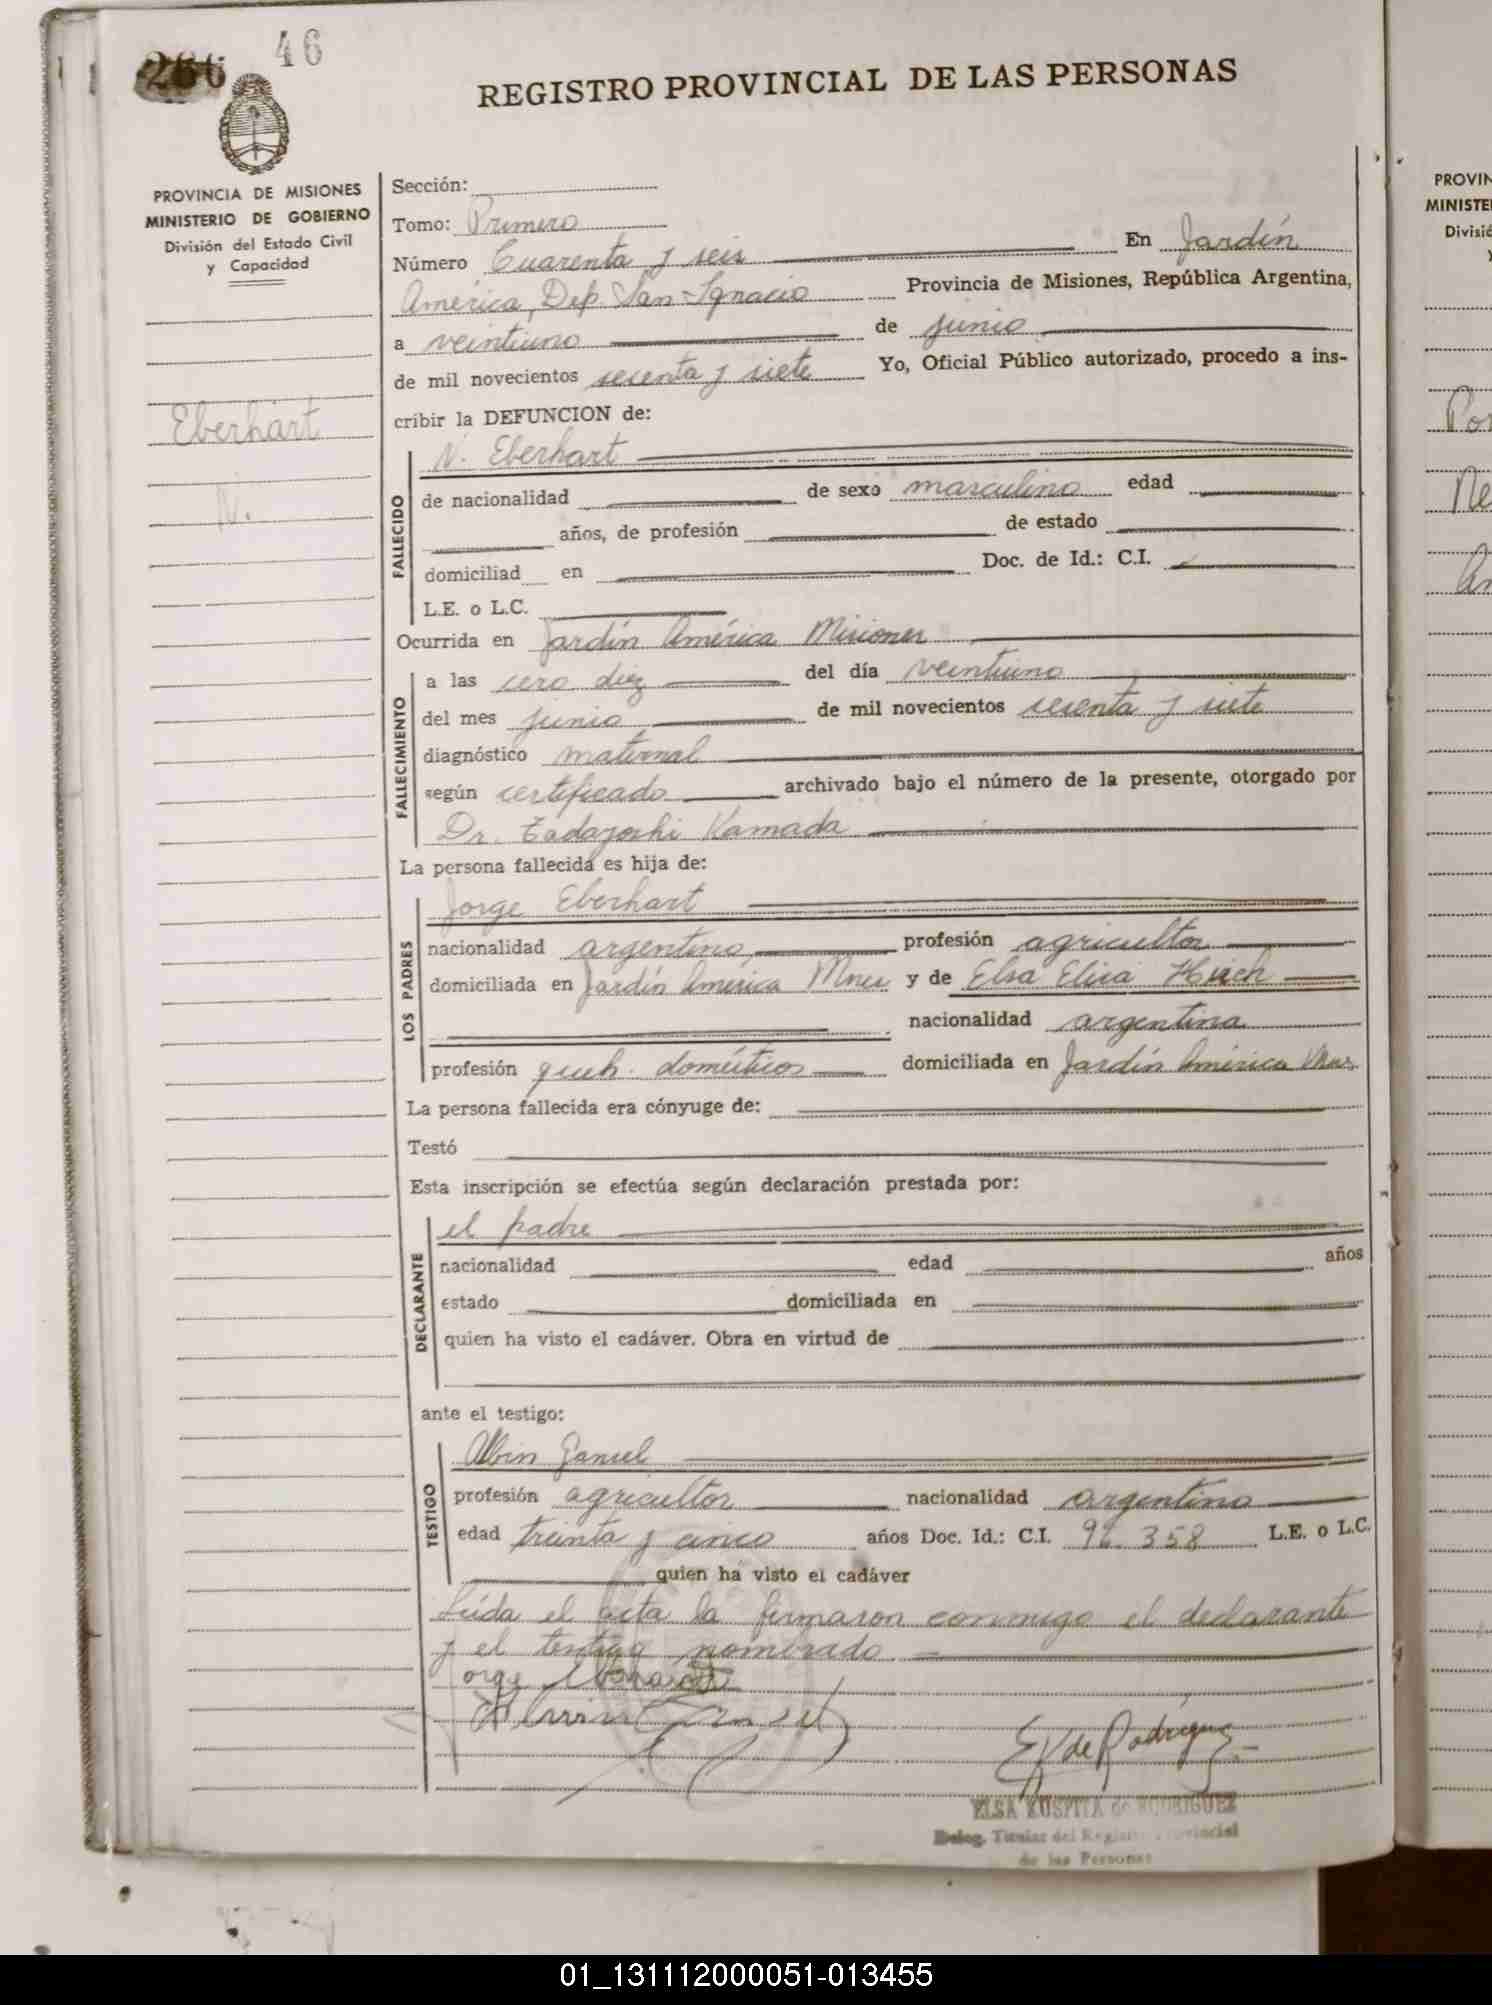 46
REGISTRO PROVINCIAL DE LAS PERSONAS
PROVINCIA DE MISIONES
MINISTERIO DE GOBIERNO
División del Estado Civil
y Capacidad
Eberhart
N.
Sección:
Tomo: Primero
Número Cuarenta y seis En Jardín
América, Dep. San Ignacio Provincia de Misiones, República Argentina,
a veintiuno de junio
de mil novecientos sesenta y siete Yo, Oficial Público autorizado, procedo a ins-
cribir la DEFUNCION de:
N. Eberhart
FALLECIDO
de nacionalidad de sexo masculino edad
años, de profesión de estado
domiciliad en Doc. de Id.: C.I.
L.E. o L.C.
Ocurrida en Jardín América Misiones
FALLECIMIENTO
a las cero diez del día veintiuno
del mes junio de mil novecientos sesenta y siete
diagnóstico maternal
según certificado archivado bajo el número de la presente, otorgado por
Dr. Tadayoshi Kamada
La persona fallecida es hija de:
LOS PADRES
Jorge Eberhart
nacionalidad argentino profesión agricultor
domiciliada en Jardín América Mnes y de Elsa Elisa
nacionalidad argentina
profesión queh. domésticos domiciliada en Jardín América Mnes.
La persona fallecida era cónyuge de:
Testó
Esta inscripción se efectúa según declaración prestada por:
DECLARANTE
el padre
nacionalidad edad años
estado domiciliada en
quien ha visto el cadáver. Obra en virtud de
ante el testigo:
TESTIGO
Albin
profesión agricultor nacionalidad argentino
edad treinta y cinco años Doc. Id.: C.I. 96.358 L.E. o L.C.
quien ha visto el cadáver
Leída el acta la firmaron conmigo el declarante
y el testigo nombrado
E V de Rodríguez
ELSA KUSPITA de RODRIGUEZ
Deleg. Titular del Registro Provincial
de las Personas
PROVIN
MINISTE
01_131112000051-013455